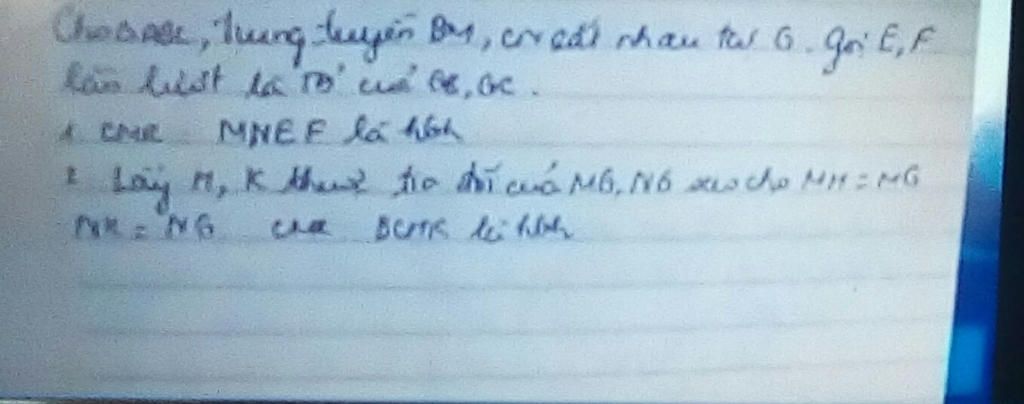 Cho ΔABC, trung tuyến BM, CN cắt nhau tại G. gọi E, F
lần lượt là TĐ của GB, GC.
1. CMR MNEF là hbh
2 Lấy H, K thuộc tia đối của MG, NG sao cho MH = MG
NK = NG CMR BCHK là hbh